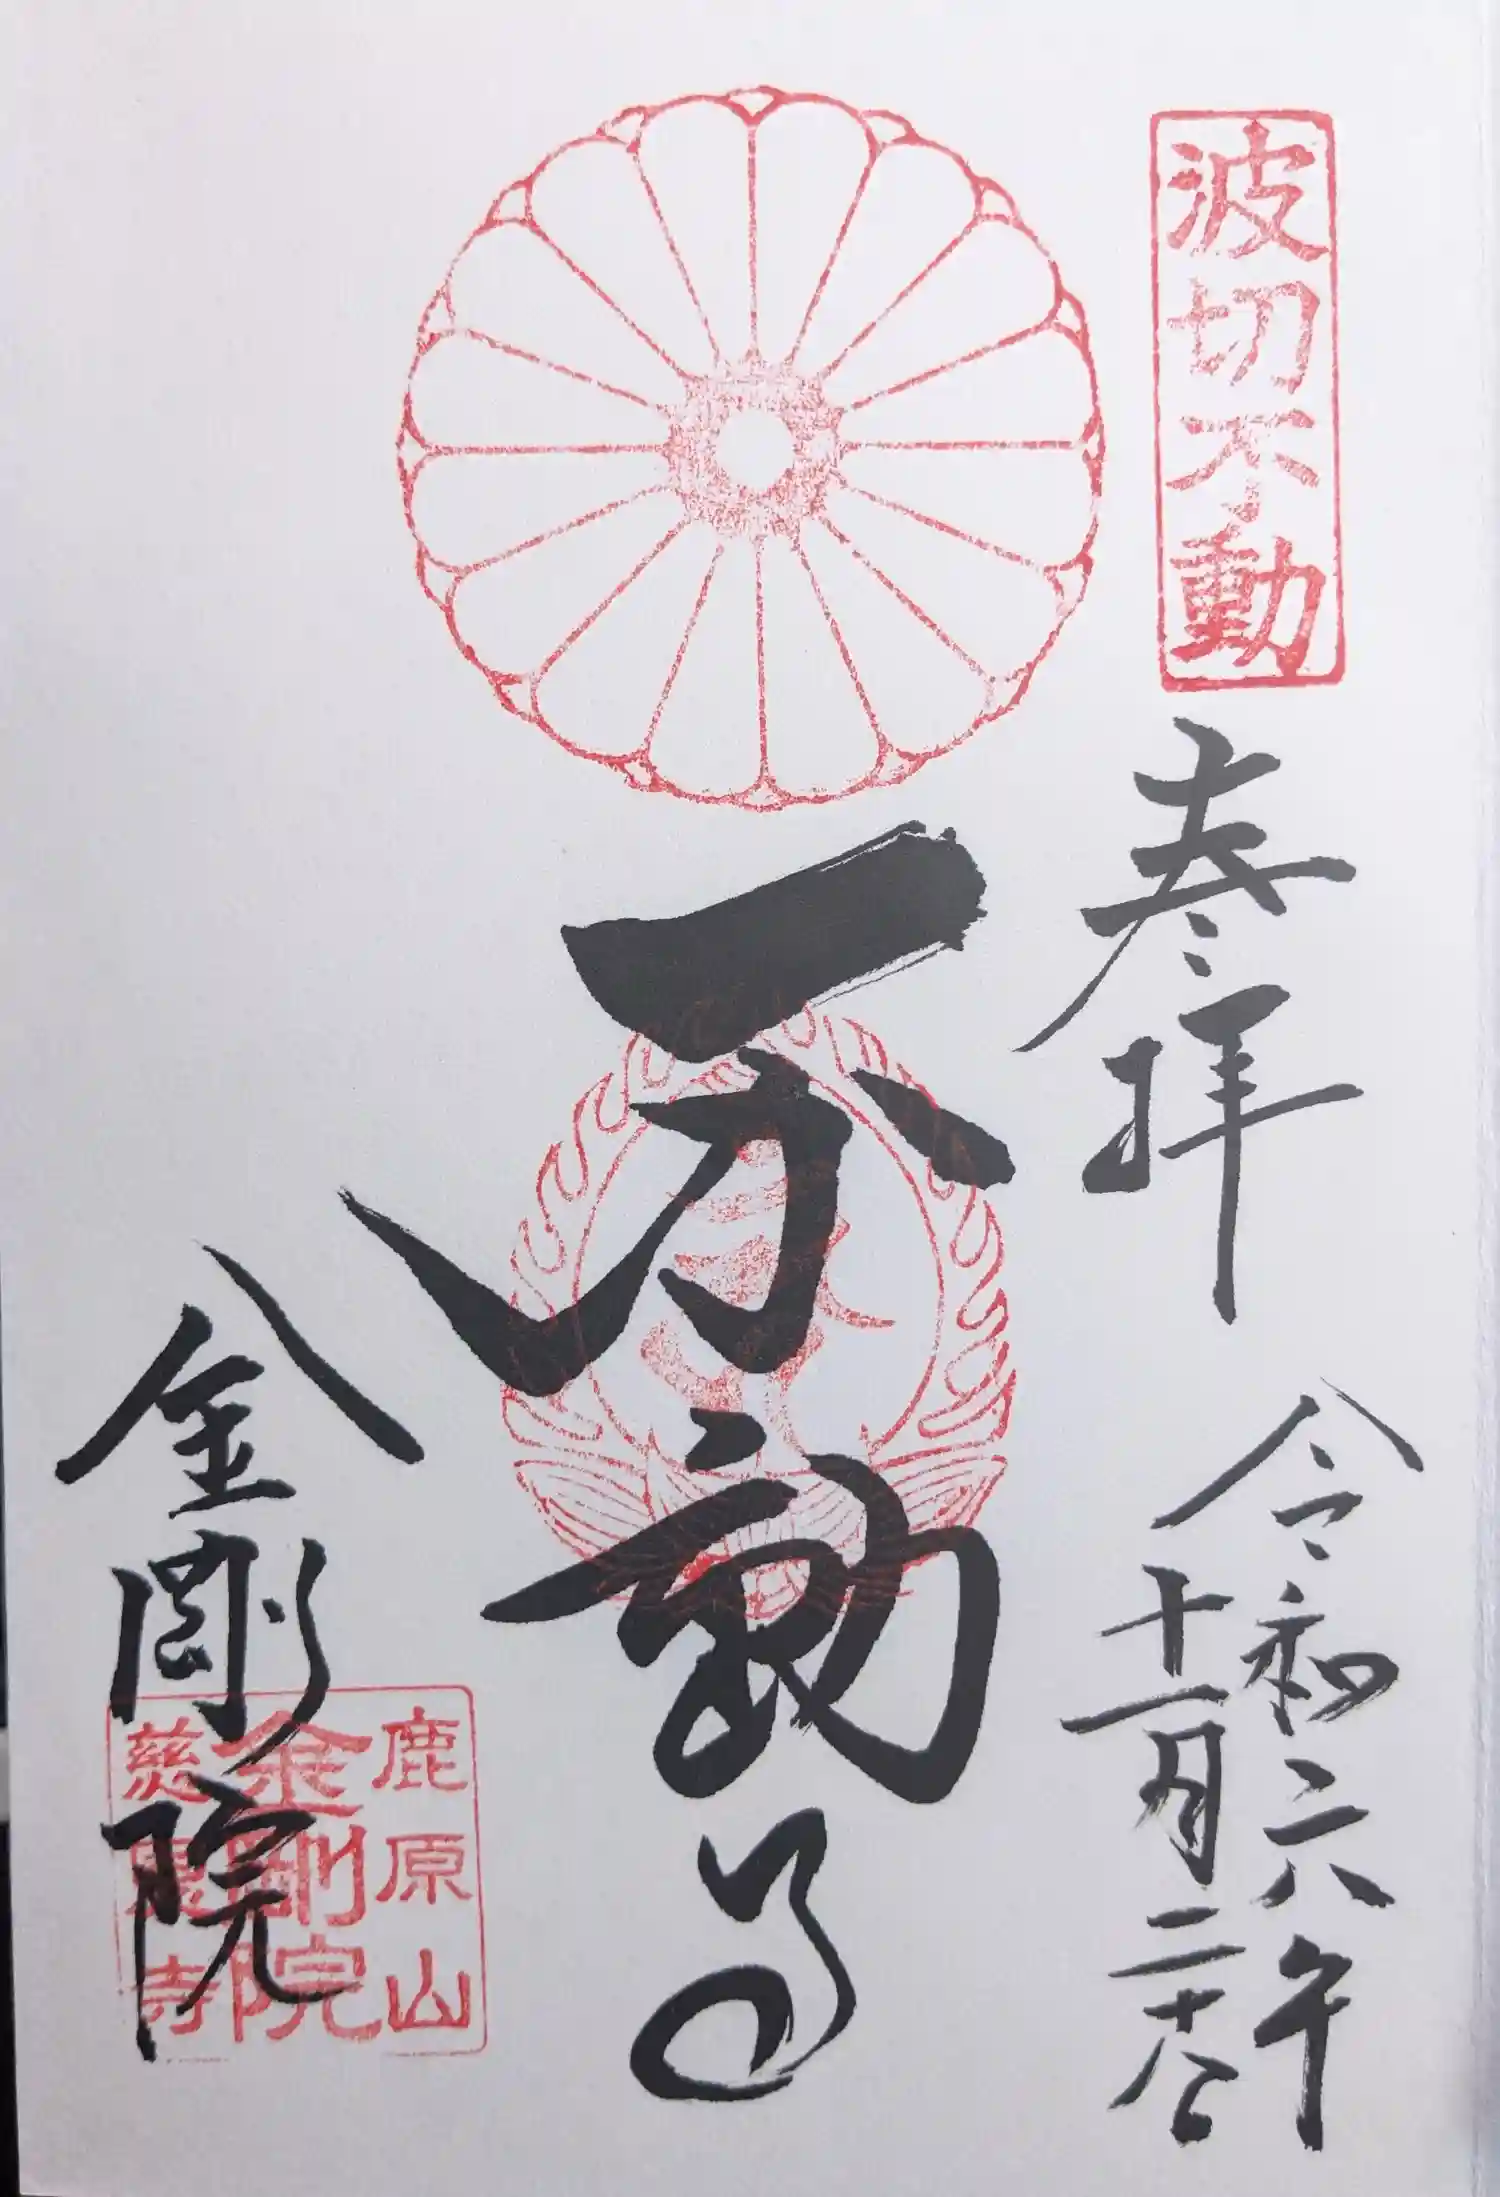 波切不動
奉拝
令和六年
十一月二十
不動尊
金剛院
鹿原山
金剛院
慈恩寺